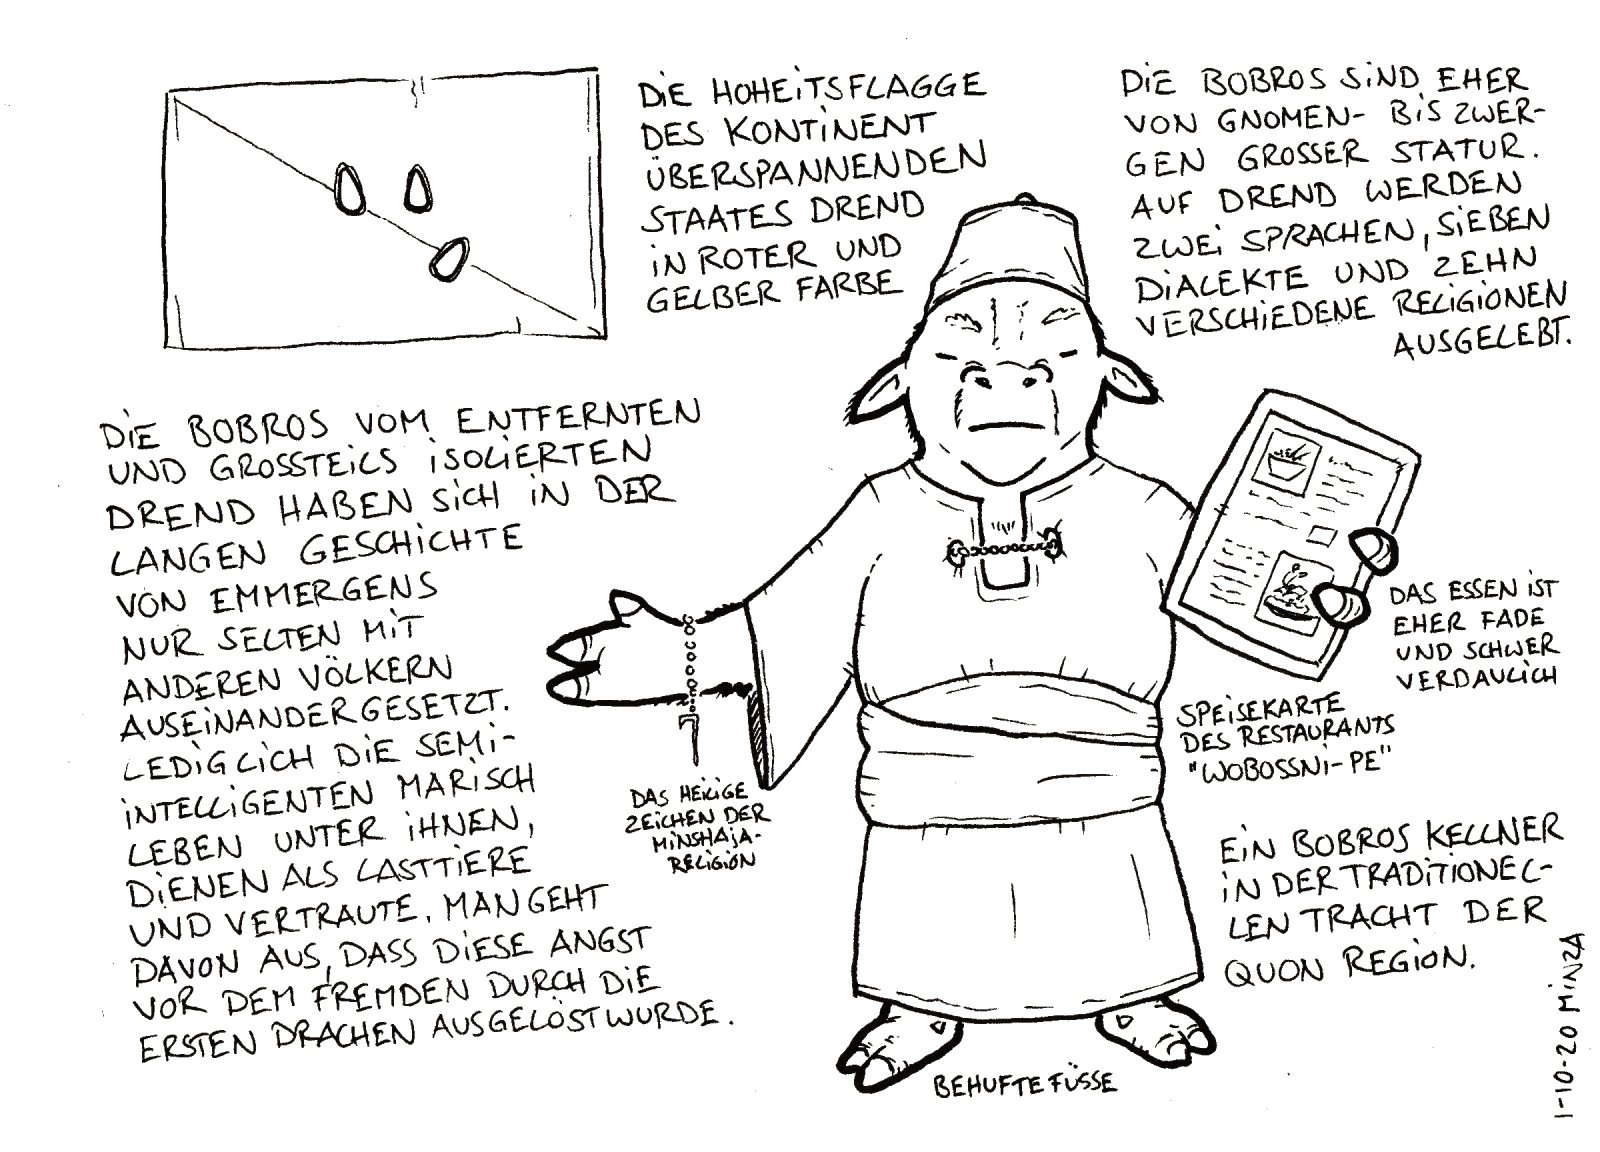 DIE HOHEITSFLAGGE
DES KONTINENT
ÜBERSPANNENDEN
STAATES DREND
IN ROTER UND
GELBER FARBE
DIE BOBROS SIND EHER
VON GNOMEN- BIS ZWER-
GEN GROSSER STATUR.
AUF DREND WERDEN
ZWEI SPRACHEN, SIEBEN
DIALEKTE UND ZEHN
VERSCHIEDENE RELIGIONEN
AUSGELEBT.
DIE BOBROS VOM ENTFERNTEN
UND GROSSTEILS ISOLIERTEN
DREND HABEN SICH IN DER
LANGEN GESCHICHTE
VON EMMERGENS
NUR SELTEN MIT
ANDEREN VÖLKERN
AUSEINANDERGESETZT.
LEDIGLICH DIE SEMI-
INTELLIGENTEN MARISCH
LEBEN UNTER IHNEN,
DIENEN ALS LASTTIERE
UND VERTRAUTE. MAN GEHT
DAVON AUS, DASS DIESE ANGST
VOR DEM FREMDEN DURCH DIE
ERSTEN DRACHEN AUSGELÖST WURDE.
DAS HEILIGE
ZEICHEN DER
MINSHAJA-
RELIGION
DAS ESSEN IST
EHER FADE
UND SCHWER
VERDAULICH
SPEISEKARTE
DES RESTAURANTS
"WOBOSSNI-PE"
EIN BOBROS KELLNER
IN DER TRADITIONEL-
LEN TRACHT DER
QUON REGION.
BEHUFTE FÜSSE
1-10-20 MINZA